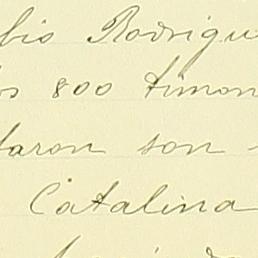 bio Rodrigu
os 800 timon
taron son
Catalina